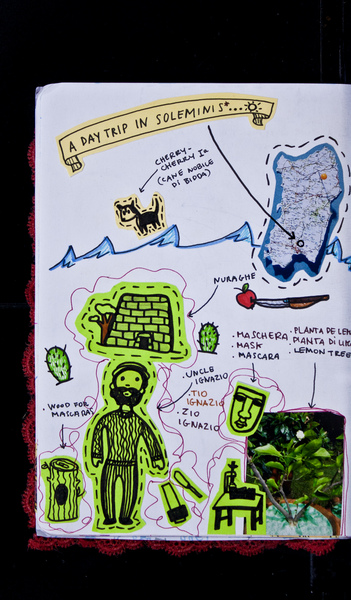 A DAY TRIP IN SOLEMINIS*....
CHERRY-
CHERRY Ia
(CANE NOBILE
DI BIDDA)
NURAGHE
. UNCLE
IGNAZIO
. TIO
IGNAZIO
. ZIO
IGNAZIO
. MASCHERA
. MASK
. MASCARA
. PLANTA DE
. PIANTA DI
. LEMON TREE
. WOOD FOR
MASCARAS